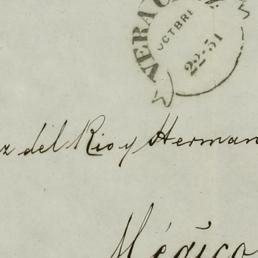 VERA
OCTBRE
22-51
del Rio y Herman
Mégico